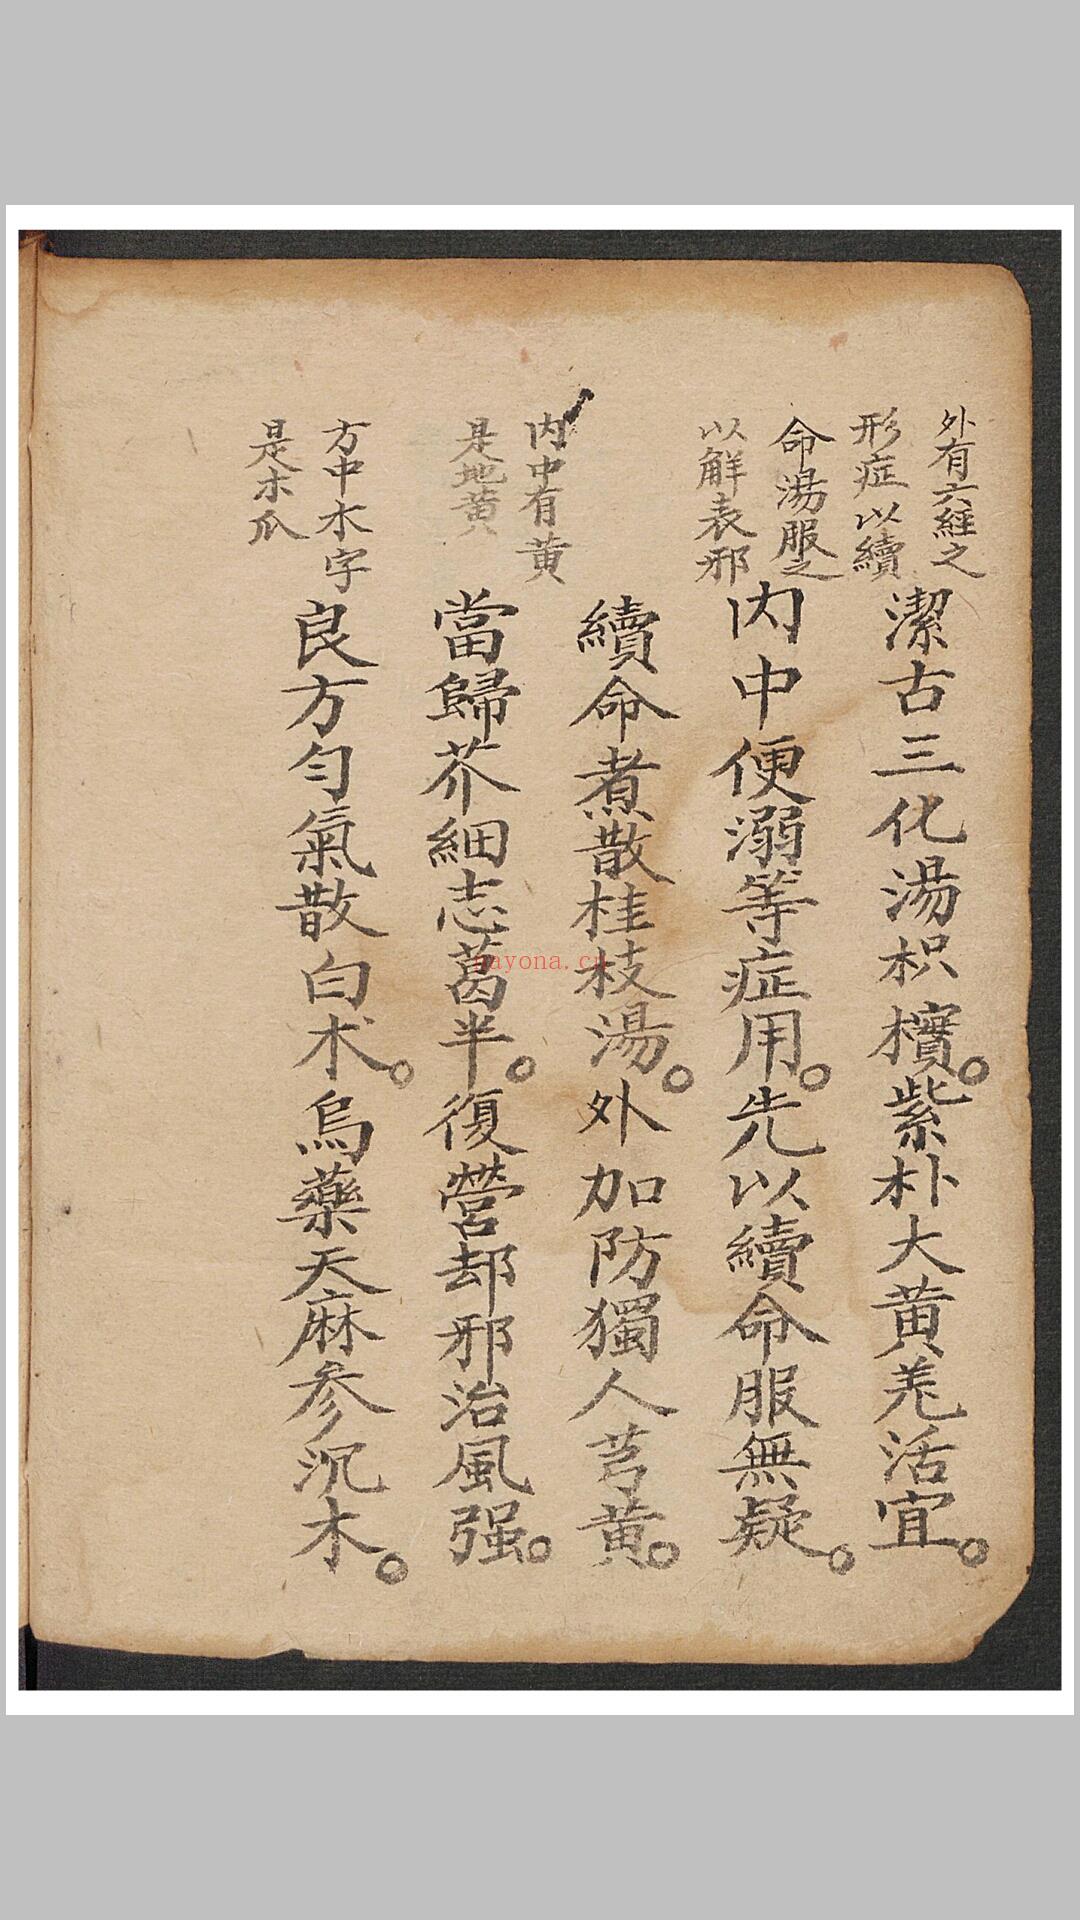 外有六經之
形症以續
命湯服之
以解表邪
潔古三化湯枳檳。紫朴大黄羌活宜。
内中便溺等症用。先以續命服無疑。
續命煮散桂枝湯。外加防獨人芎黄。
内中有黄
是地黄
當歸芥細志葛半。復營却邪治風强。
方中木字
是木瓜
良方匀氣散白术。烏藥天麻参沉木。
nayona.cn